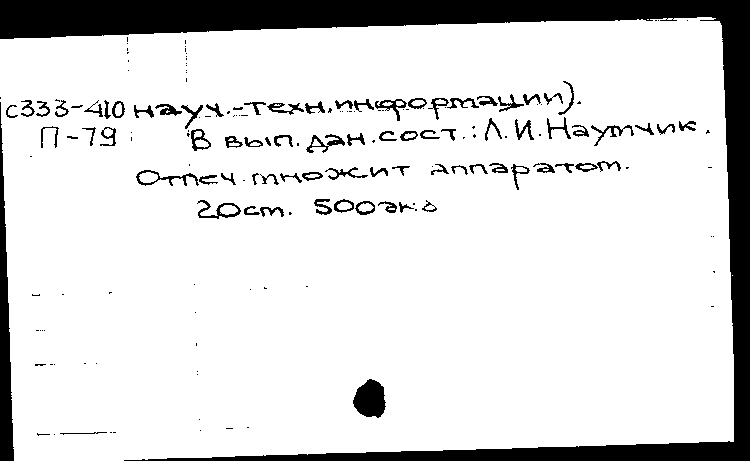 с333-410 науч.-техн.информации).
П-79 В вып. дан. сост.: Л.И.Наумчик.
Отпеч. множит аппаратом.
20см. 500экз